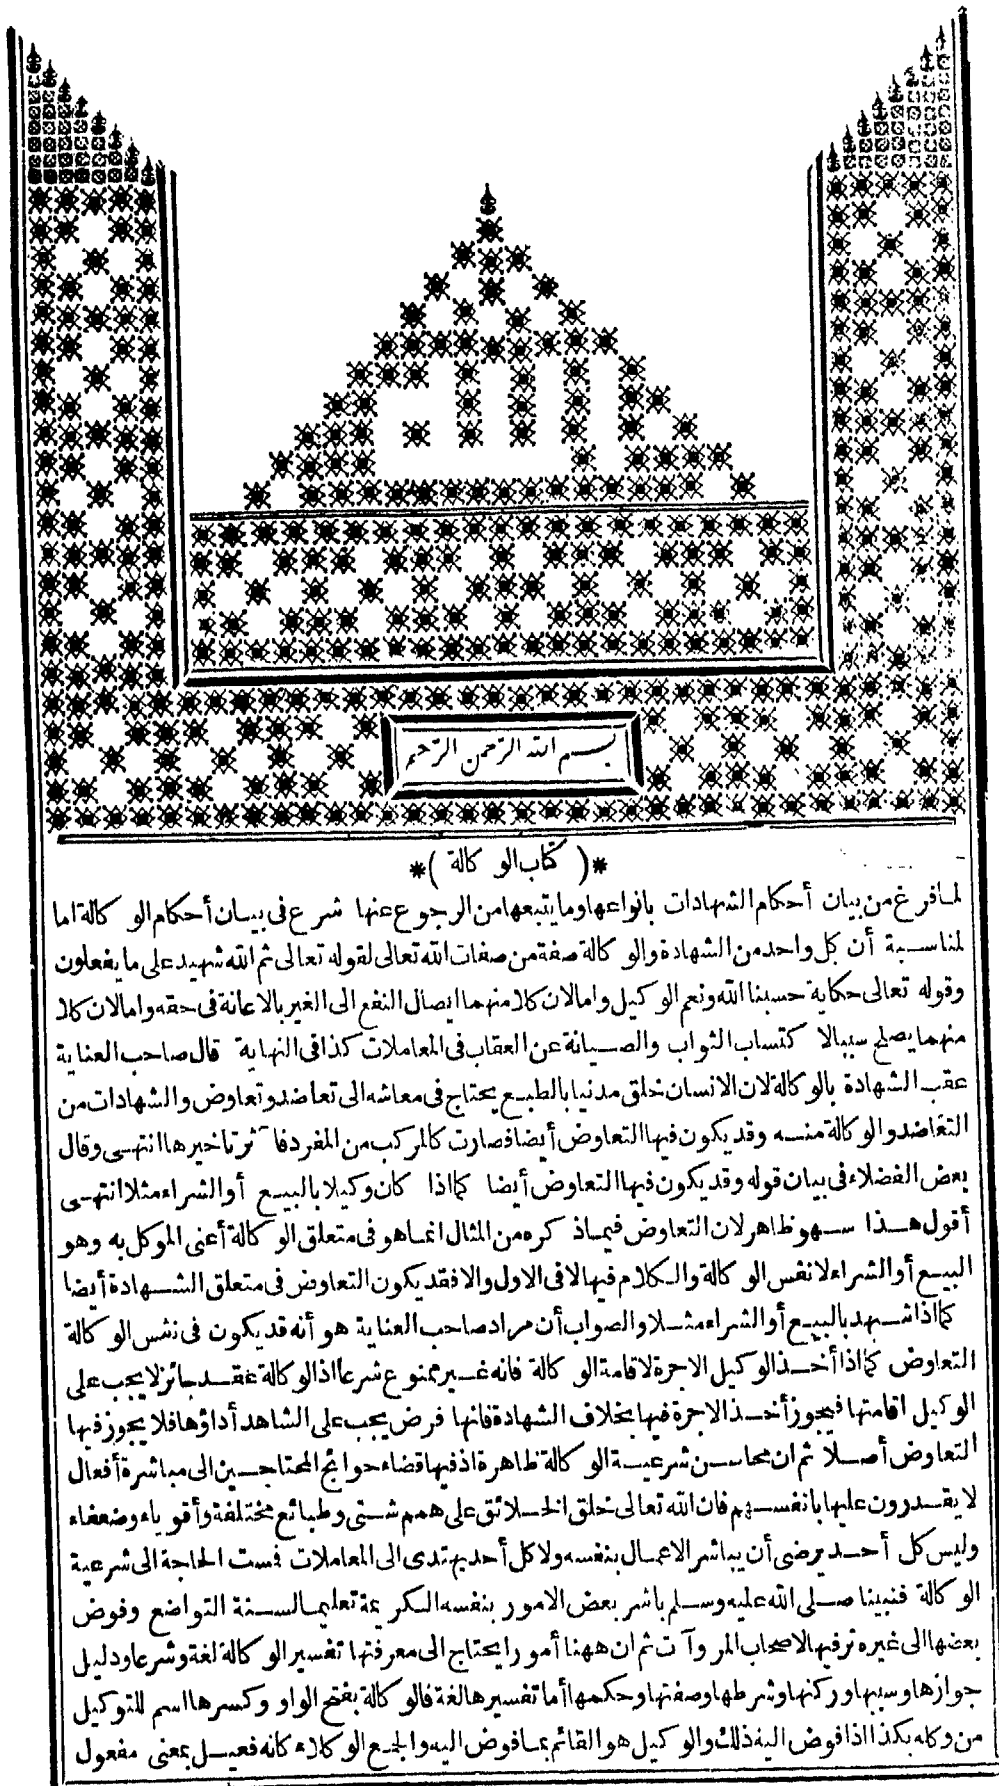 بسم الله الرحمن الرحيم
*( كتاب الوكالة )*
لما فرغ من بيان أحكام الشهادات بانواعها وما يتبعها من الرجوع عنها شرع فى بيان أحكام الوكالة اما
لمناسبة أن كل واحد من الشهادة والوكالة صفة من صفات الله تعالى لقوله تعالى ثم الله شهيد على ما يفعلون
وقوله تعالى حكاية حسبنا الله ونعم الوكيل واما لان كلا منهما ايصال النفع الى الغير بالاعانة فى حقه واما لان كلا
منهما يصلح سببا لا كتساب الثواب والصيانة عن العقاب فى المعاملات كذا فى النهاية قال صاحب العناية
عقب الشهادة بالوكالة لان الانسان خلق مدنيا بالطبع يحتاج فى معاشه الى تعاضد وتعاوض والشهادات من
التعاضد والوكالة منه وقد يكون فيها التعاوض أيضا فصارت كالمركب من المفرد فآثر تاخيرها انتهى وقال
بعض الفضلاء فى بيان قوله وقد يكون فيها التعاوض أيضا كما اذا كان وكيلا بالبيع أو الشراء مثلا انتهى
أقول هذا سهو ظاهر لان التعاوض فيما ذكره من المثال انما هو فى متعلق الوكالة أعنى الموكل به وهو
البيع أو الشراء لا نفس الوكالة والكلام فيها لا فى الاول والا فقد يكون التعاوض فى متعلق الشهادة أيضا
كما اذا شهد بالبيع أو الشراء مثلا والصواب أن مراد صاحب العناية هو أنه قد يكون فى نفس الوكالة
التعاوض كما اذا أخذ الوكيل الاجرة لاقامة الوكالة فانه غير ممنوع شرعا اذ الوكالة عقد جائز لا يجب على
الوكيل اقامتها فيجوز أخذ الاجرة فيها بخلاف الشهادة فانها فرض يجب على الشاهد أداؤها فلا يجوز فيها
التعاوض أصلا ثم ان محاسن شرعية الوكالة ظاهرة اذ فيها قضاء حوائج المحتاجين الى مباشرة أفعال
لا يقدرون عليها بانفسهم فان الله تعالى خلق الخلائق على همم شتى وطبائع مختلفة وأقوياء وضعفاء
وليس كل أحد يرضى أن يباشر الاعمال بنفسه ولا كل أحد يهتدى الى المعاملات فست الحاجة الى شرعية
الوكالة فنبينا صلى الله عليه وسلم باشر بعض الامور بنفسه الكريمة تعليما لسنة التواضع وفوض
بعضها الى غيره ترفيها لاصحاب المروآت ثم ان ههنا أمورا يحتاج الى معرفتها تفسير الوكالة لغة وشرعا ودليل
جوازها وسببها وركنها وشرطها وصفتها وحكمها أما تفسيرها لغة فالوكالة بفتح الواو وكسرها اسم للتوكيل
من وكله بكذا اذا فوض اليه ذلك والوكيل هو القائم بما فوض اليه والجمع الوكلاء كانه فعيل بمعنى مفعول